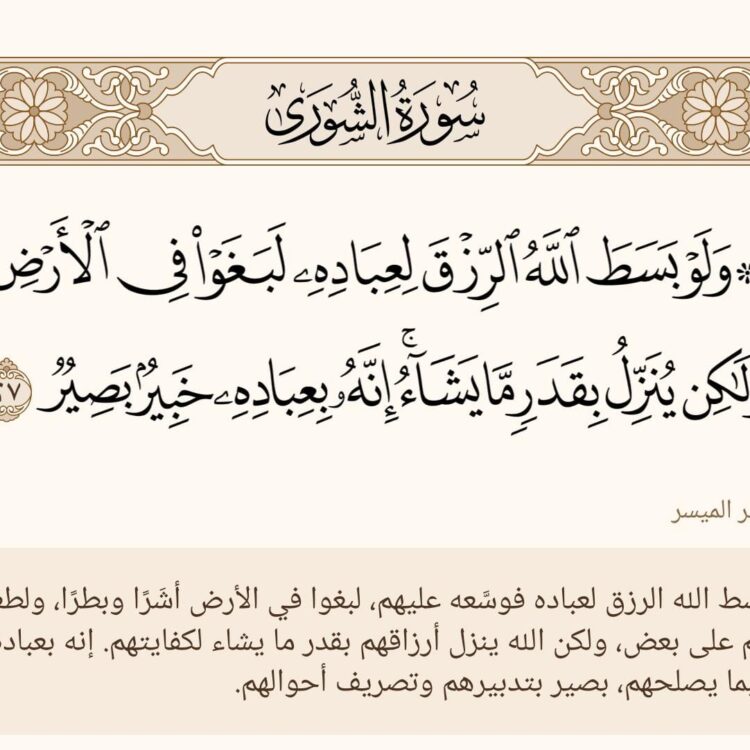 سُورَةُ الشُّورَىٰ
۞ وَلَوْ بَسَطَ ٱللَّهُ ٱلرِّزْقَ لِعِبَادِهِۦ لَبَغَوْا۟ فِى ٱلْأَرْضِ
وَلَـٰكِن يُنَزِّلُ بِقَدَرٍ مَّا يَشَآءُ ۚ إِنَّهُۥ بِعِبَادِهِۦ خَبِيرٌۢ بَصِيرٌ ٢٧
الميسر
الله الرزق لعباده فوسَّعه عليهم، لبغوا في الأرض أشَرًا وبطرًا،
على بعض، ولكن الله ينزل أرزاقهم بقدر ما يشاء لكفايتهم. إنه
يصلحهم، بصير بتدبيرهم وتصريف أحوالهم.